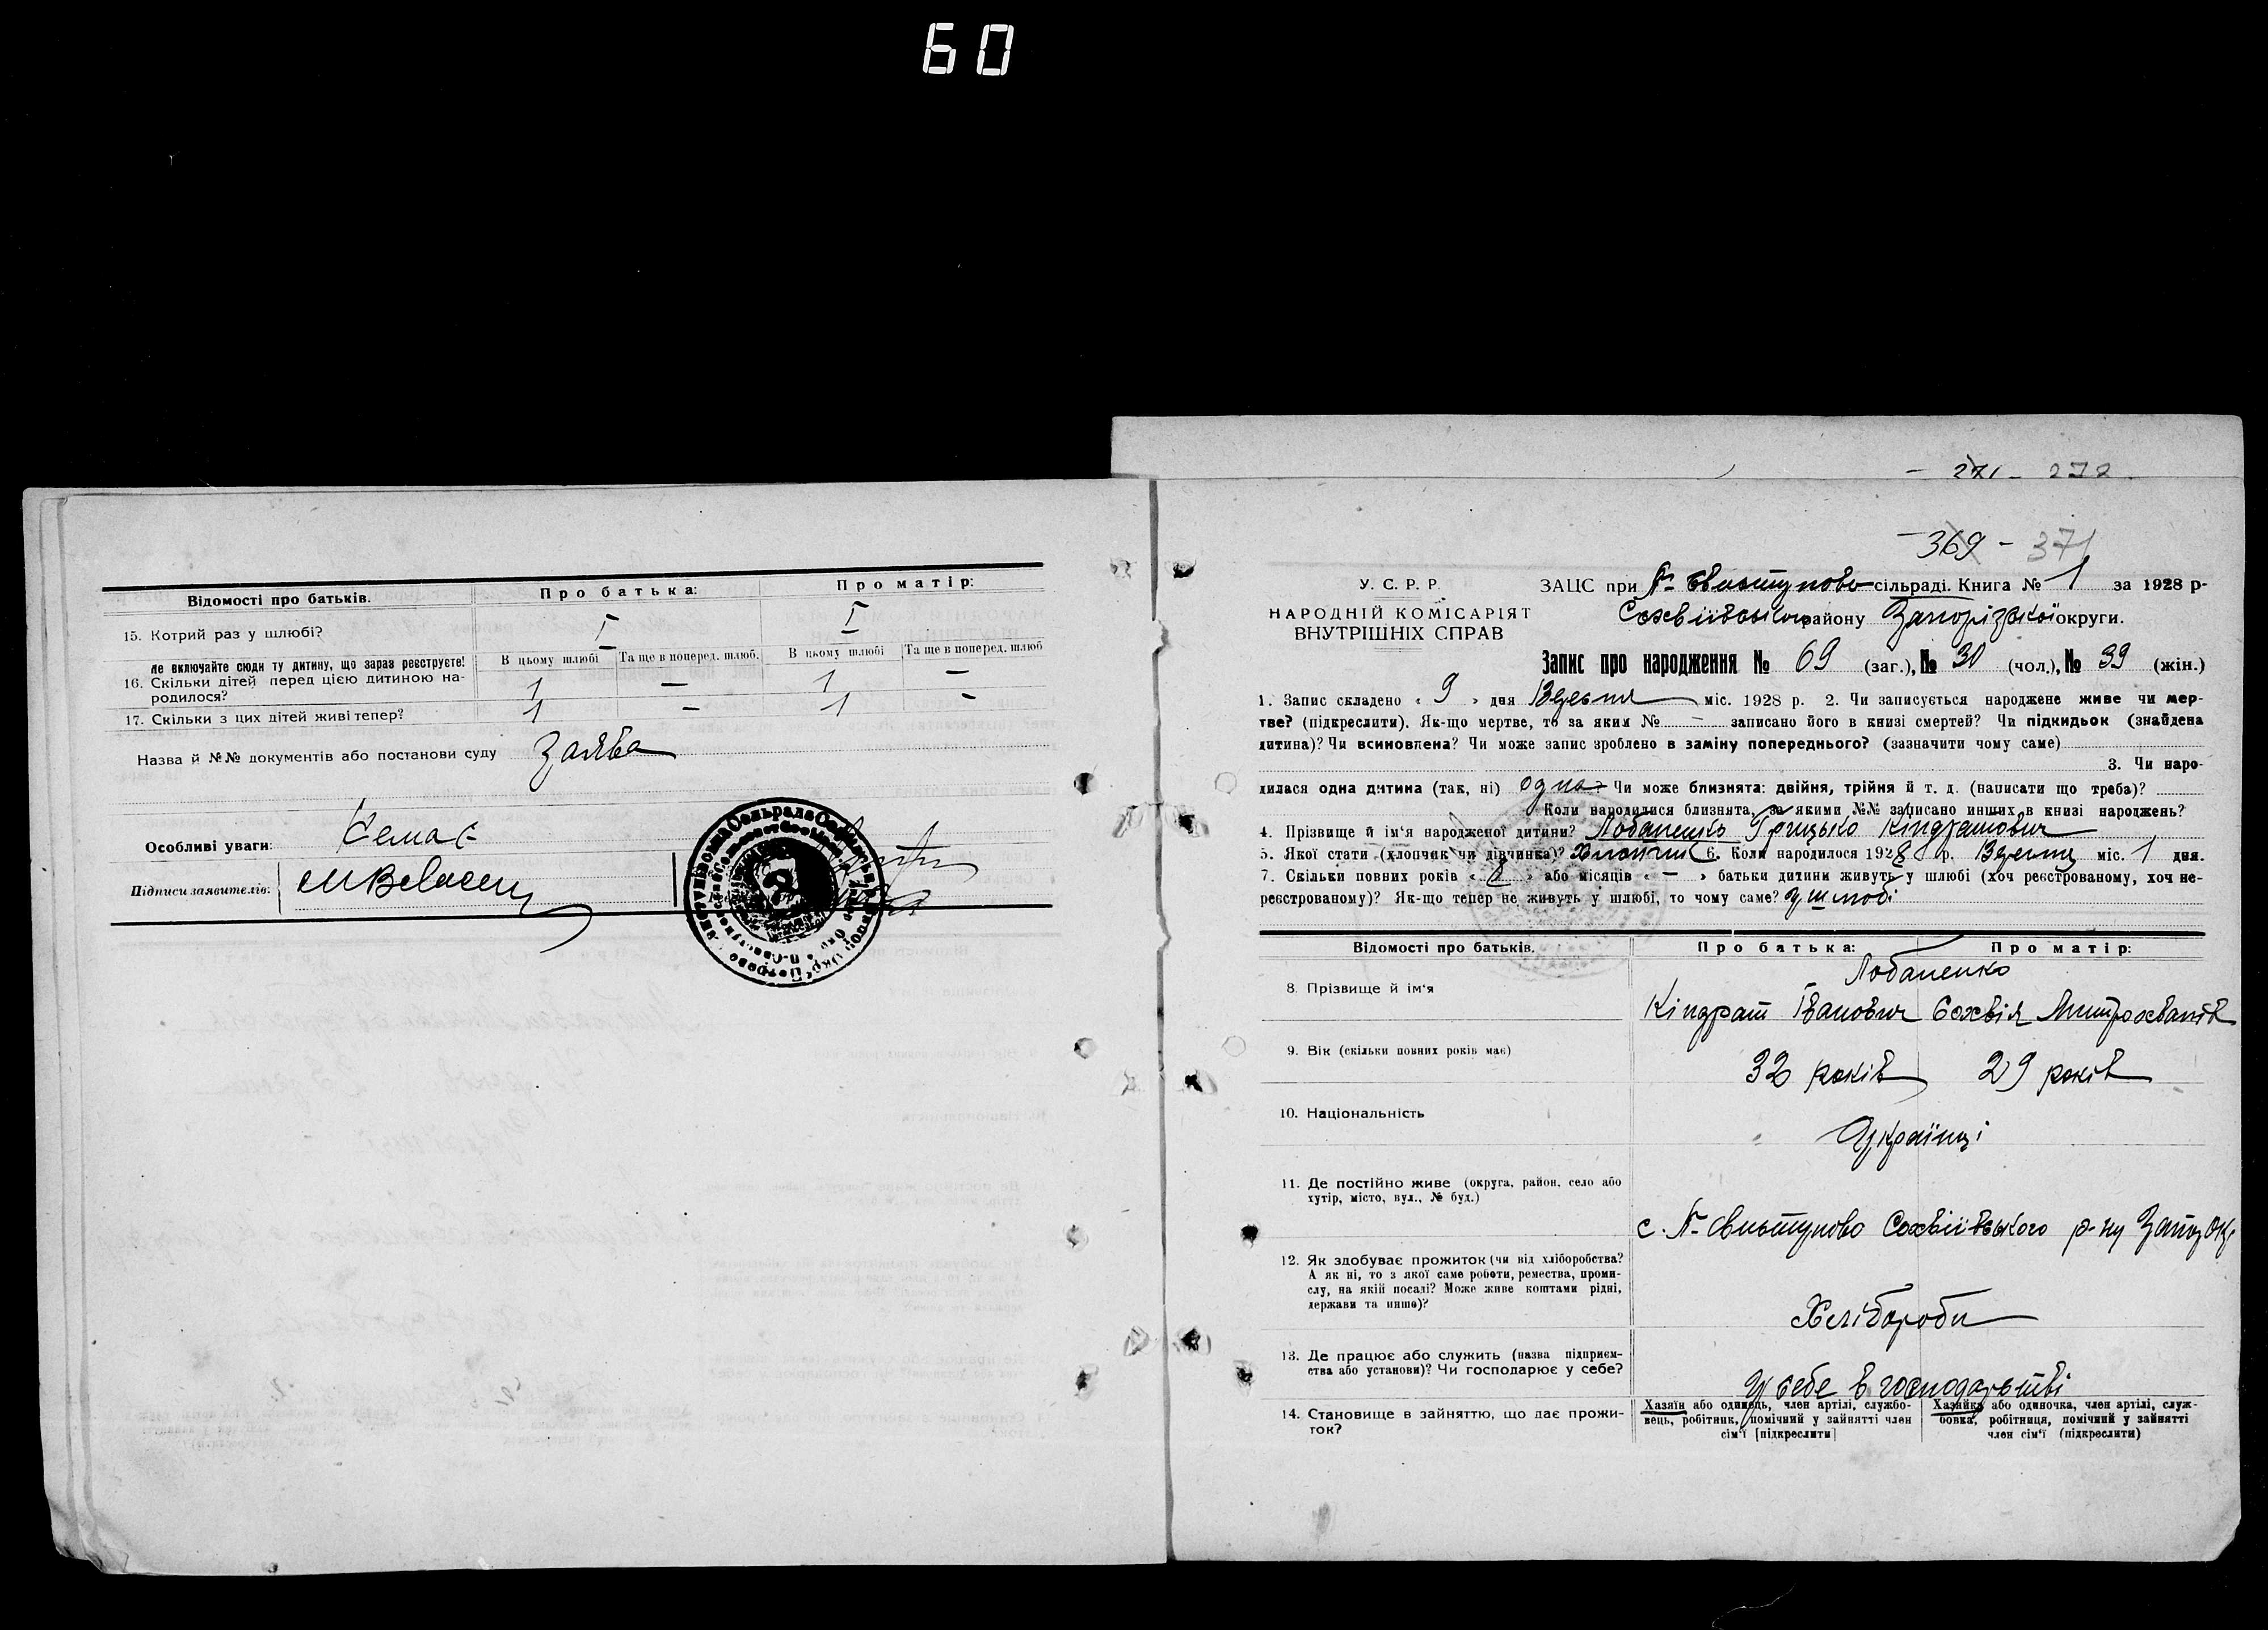 60
271 - 272
Відомості про батьків. Про батька: Про матір:
15. Котрий раз у шлюбі? I I
Не включайте сюди ту дитину, що зараз реєструєте! В цьому шлюбі Та ще в поперед. шлюб. В цьому шлюбі Та ще в поперед. шлюб
16. Скільки дітей перед цією дитиною на-
родилося? 1 — 1 —
17. Скільки з цих дітей живі тепер? 1 — 1 -
Назва й №№ документів або постанови суду Заява
Особливі уваги: Немає
Підписи заявителів:
369 - 371
У. С. Р. Р. ЗАЦС при П-Свистуново сільраді. Книга № 1 за 1928 р-
НАРОДНІЙ КОМІСАРІЯТ Софіївського району Запорізької округи.
ВНУТРІШНІХ СПРАВ
Запис про народження № 69 (заг.), № 30 (чол.), № 39 (жін.)
1. Запис складено « 9 » дня Вересня міс. 1928 р. 2. Чи записується народжене живе чи мер-
тве? (підкреслити). Як-що мертве, то за яким № — записано його в книзі смертей? Чи підкидьок (знайдена
дитина)? Чи всиновлена? Чи може запис зроблено в заміну попереднього? (зазначити чому саме)
3. Чи наро-
дилася одна дитина (так, ні) одна Чи може близнята: двійня, трійня й т. д. (написати що треба)?
Коли народилися близнята, за якими №№ записано инших в книзі народжень?
4. Прізвище й ім'я народженої дитини? Лобаненко Грицько Кіндратович
5. Якої стати (хлопчик чи дівчинка)? Хлопчик 6. Коли народилося 1928 р. Вересня міс. 1 дня.
7. Скільки повних років « 8 » або місяців « — » батьки дитини живуть у шлюбі (хоч реєстрованому, хоч не-
реєстрованому)? Як-що тепер не живуть у шлюбі, то чому саме? у шлюбі
Відомості про батьків. Про батька: Про матір:
Лобаненко
8. Прізвище й ім'я Кіндрат Іванович Сохвія Митрохванів
9. Вік (скільки повних років має) 32 років 29 років
10. Національність Українці
11. Де постійно живе (округа, район, село або
хутір, місто, вул., № буд.)
с. П-Свистуново Сохвіївського р-ну Запоз Окр
12. Як здобуває прожиток (чи від хліборобства?
А як ні, то з якої саме роботи, ремества, проми-
слу, на якій посаді? Може живе коштами рідні,
держави та инше)? Хлібороби
13. Де працює або служить (назва підприєм-
ства або установи)? Чи господарює у себе? У себе в господарстві
14. Становище в зайняттю, що дає прожи-
ток?
Хазяїн або одинець, член артілі, службо-
вець, робітник, помічний у зайнятті член
сім'ї [підкреслити]
Хазяйка або одиночка, член артілі, служ-
бовка, робітниця, помічний у зайнятті
член сім'ї (підкреслити)